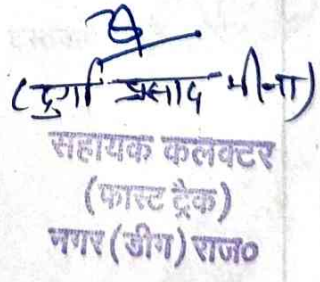 (दुर्गा प्रसाद मीना)
सहायक कलक्टर
(फास्ट ट्रैक)
नगर (डीग) राज०